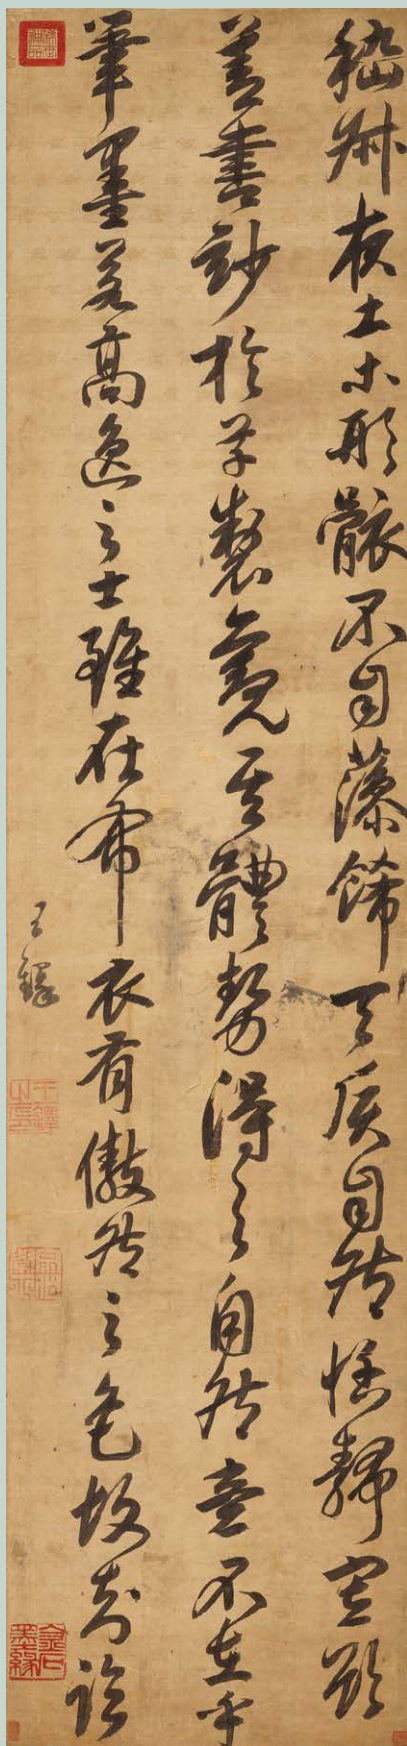 嵇叔夜土木形骸不自藻飾天質自然恬靜寡欲
善書妙於草製觀其體勢得之自然意不在乎
筆墨若高逸之士雖在布衣有傲然之色故知臨
王鐸
王鐸之印
金石墨緣